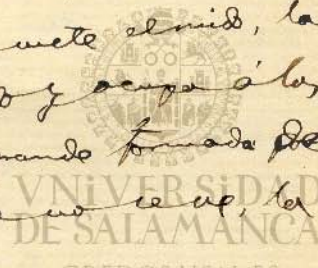 mete el nido, la
y ocupa á los
formada de
no se ve, la
VNiVERSiDAD
DE SALAMANCA